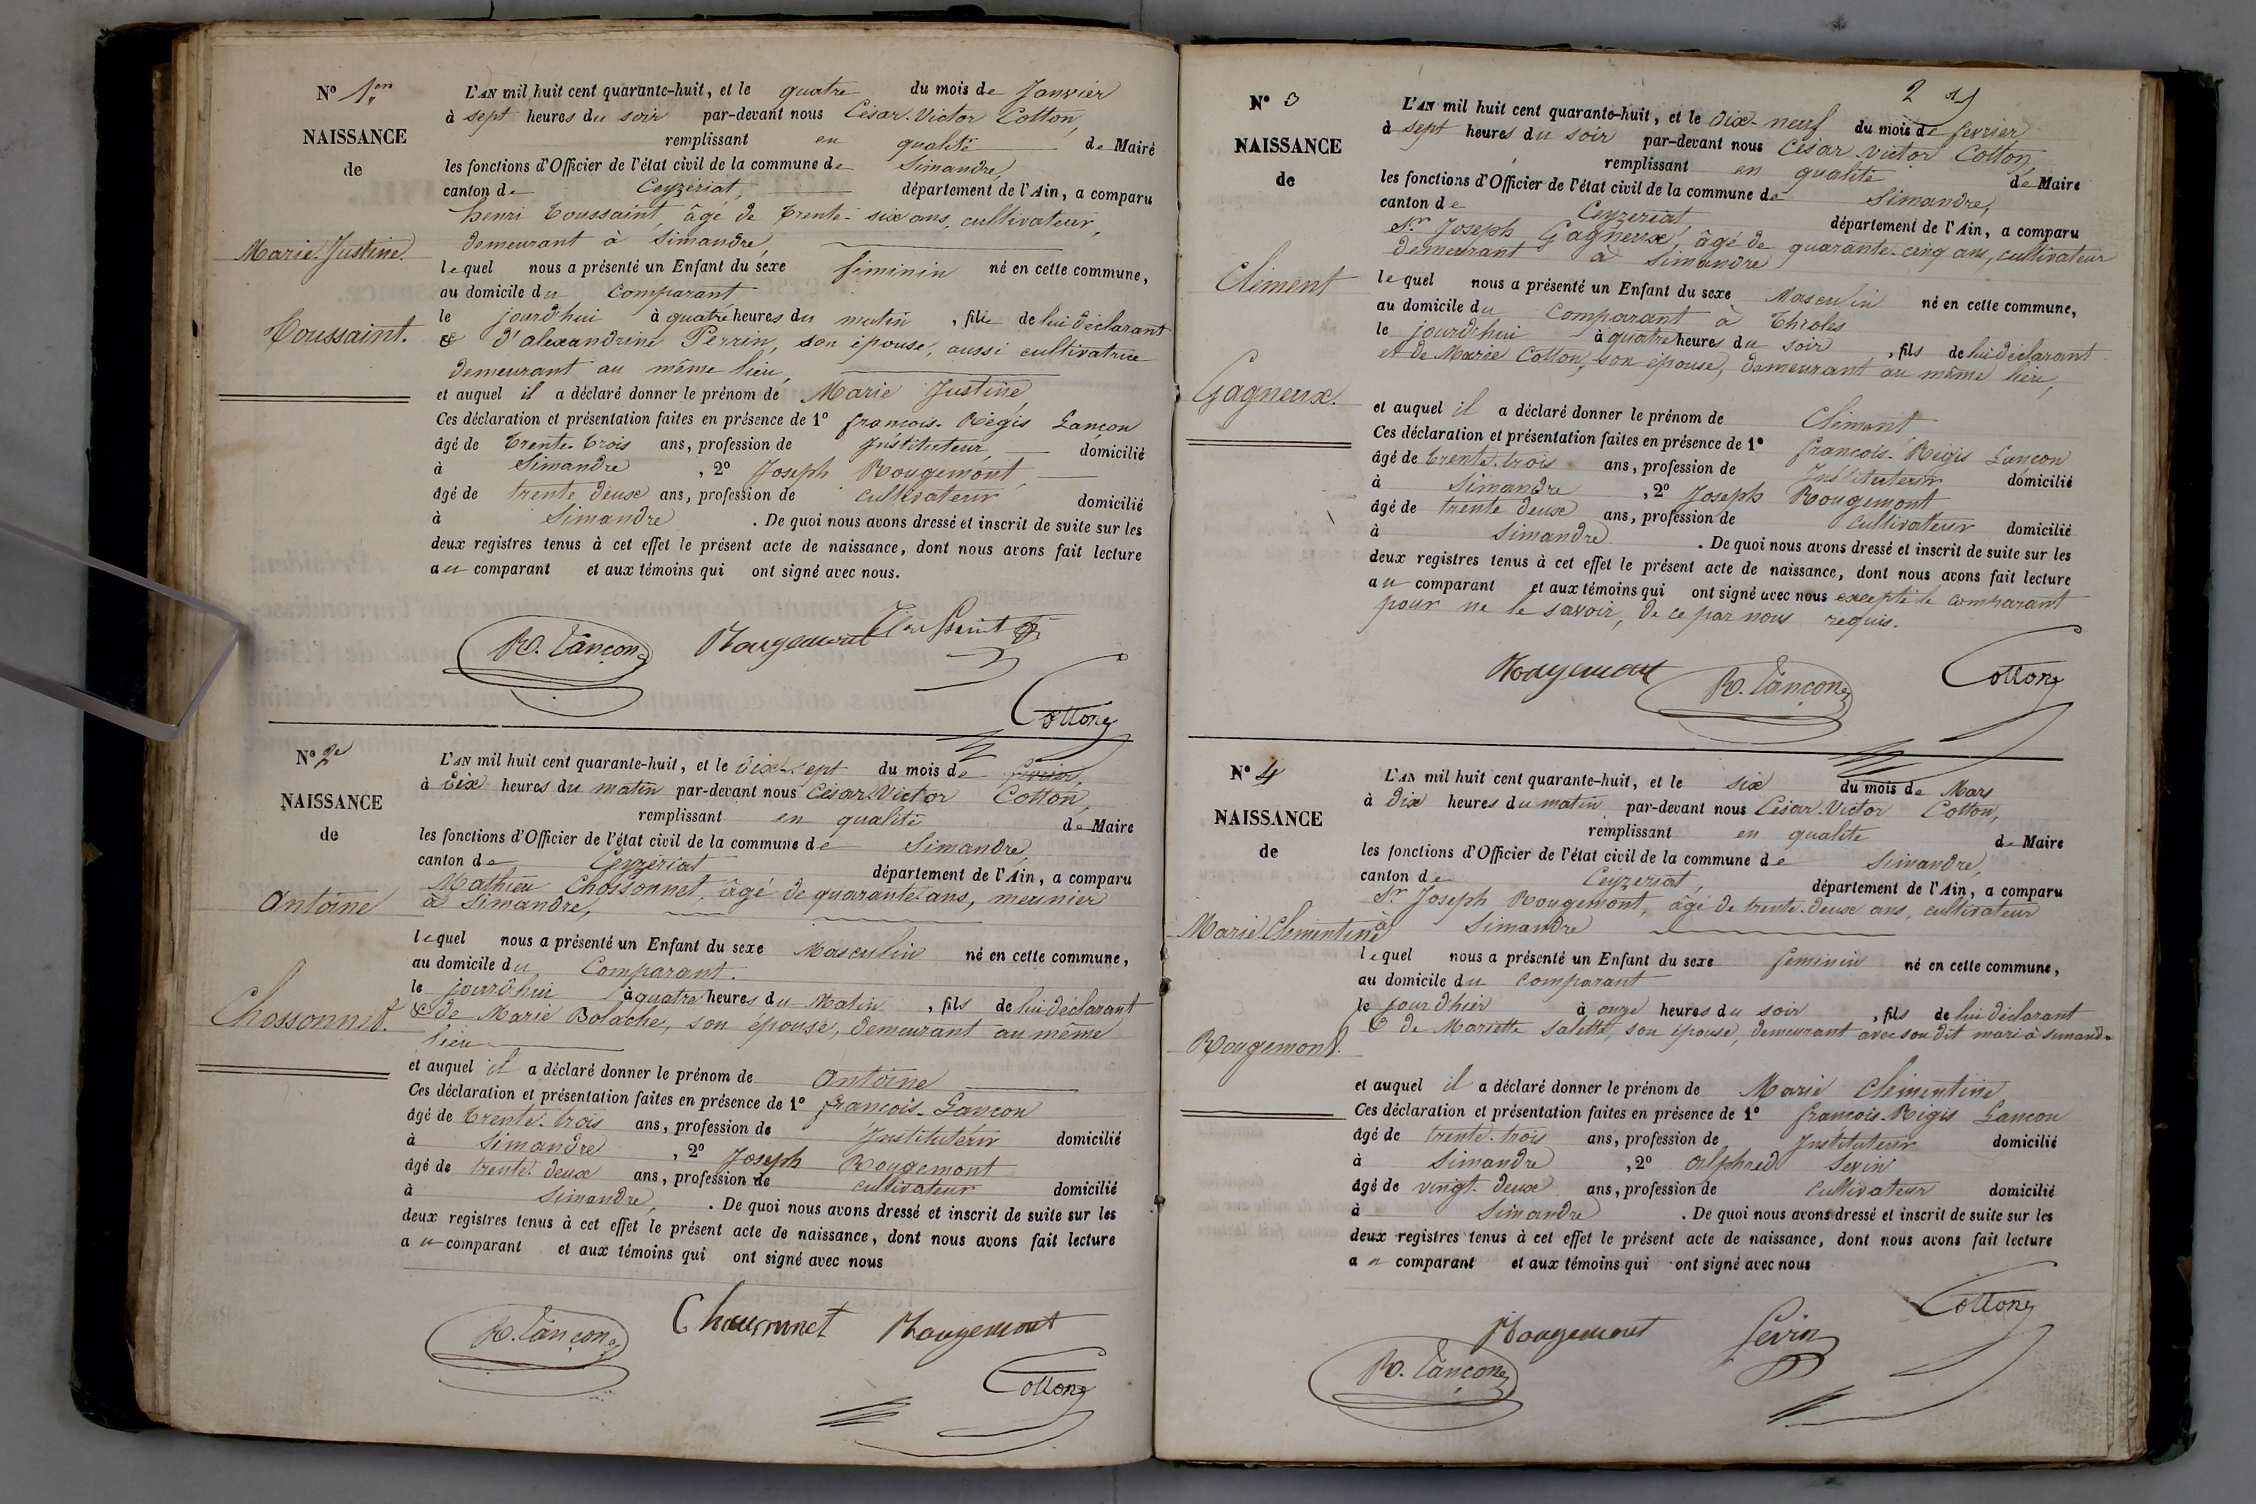 N° 1er
NAISSANCE
de
Marie Justine
Toussaint.
L'AN mil huit cent quarante-huit, et le quatre du mois de Janvier
à sept heures du soir par-devant nous César-Victor Cotton,
remplissant en qualité de Maire
les fonctions d'Officier de l'état civil de la commune de Simandre,
canton de Ceyzériat, département de l'Ain, a comparu
henri Toussaint, âgé de trente-six ans, cultivateur,
demeurant à Simandre,
lequel nous a présenté un Enfant du sexe féminin né en cette commune,
au domicile du Comparant
le jourd'hui à quatre heures du matin, fille de lui déclarant
& d'alexandrine Perrin, son épouse, aussi cultivatrice
demeurant au même lieu,
et auquel il a déclaré donner le prénom de Marie Justine
Ces déclaration et présentation faites en présence de 1° françois-Régis Lançon
âgé de trente-trois ans, profession de Instituteur, domicilié
à Simandre, 2° Joseph Rougemont,
âgé de trente deux ans, profession de cultivateur domicilié
à Simandre. De quoi nous avons dressé et inscrit de suite sur les
deux registres tenus à cet effet le présent acte de naissance, dont nous avons fait lecture
au comparant et aux témoins qui ont signé avec nous.
R. Lançon Rougemont
Cotton
N° 2e
NAISSANCE
de
Antoine
Chossonnet.
L'AN mil huit cent quarante-huit, et le dix-sept du mois de février,
à dix heures du matin par-devant nous César-Victor Cotton,
remplissant en qualité de Maire
les fonctions d'Officier de l'état civil de la commune de Simandre,
canton de Ceyzériat département de l'Ain, a comparu
Mathieu Chossonnet, âgé de quarante ans, meunier
à Simandre,
lequel nous a présenté un Enfant du sexe Masculin né en cette commune,
au domicile du Comparant.
le jourd'hui à quatre heures du Matin, fils de lui déclarant
& de Marie Bolache, son épouse, demeurant au même
lieu
et auquel il a déclaré donner le prénom de Antoine
Ces déclaration et présentation faites en présence de 1° françois-Lançon
âgé de trente-trois ans, profession de Instituteur domicilié
à Simandre, 2° Joseph Rougemont
âgé de trente deux ans, profession de cultivateur domicilié
à Simandre,. De quoi nous avons dressé et inscrit de suite sur les
deux registres tenus à cet effet le présent acte de naissance, dont nous avons fait lecture
au comparant et aux témoins qui ont signé avec nous
R. Lançon Rougemont
Cotton
2
N° 3
NAISSANCE
de
Climent
Gagneux.
L'AN mil huit cent quarante-huit, et le dix-neuf du mois de fevrier
à sept heures du soir par-devant nous César Victor Cotton
remplissant en qualité de Maire
les fonctions d'Officier de l'état civil de la commune de Simandre,
canton de Ceyzeriat, département de l'Ain, a comparu
Sr Joseph Gagneux, âgé de quarante-cinq ans, cultivateur
demeurant à Simandre
lequel nous a présenté un Enfant du sexe Masculin né en cette commune,
au domicile du Comparant à Thioles
le jourd'hui à quatre heures du soir, fils de lui déclarant
et de Marie Cotton, son épouse, demeurant au même lieu,
et auquel il a déclaré donner le prénom de Climent
Ces déclaration et présentation faites en présence de 1° françois-Régis Lançon
âgé de trente-trois ans, profession de Instituteur domicilié
à Simandre, 2° Joseph Rougemont
âgé de trente deux ans, profession de cultivateur domicilié
à Simandre. De quoi nous avons dressé et inscrit de suite sur les
deux registres tenus à cet effet le présent acte de naissance, dont nous avons fait lecture
au comparant et aux témoins qui ont signé avec nous excepté le comparant
pour ne le savoir, de ce par nous requis.
Rougemont R. Lançon Cotton
N° 4
NAISSANCE
de
Marie Clementine
Rougemont.
L'AN mil huit cent quarante-huit, et le six du mois de Mars
à dix heures du matin par-devant nous César-Victor Cotton,
remplissant en qualité de Maire
les fonctions d'Officier de l'état civil de la commune de Simandre,
canton de Ceyzeriat, département de l'Ain, a comparu
Sr Joseph Rougemont, âgé de trente-deux ans, cultivateur
à Simandre
lequel nous a présenté un Enfant du sexe feminin né en cette commune,
au domicile du comparant
le jour d'hier à onze heures du soir, fils de lui déclarant
& de Mariette Salette, son épouse, demeurant avec son dit mari à Simandre
et auquel il a déclaré donner le prénom de Marie Clémentine
Ces déclaration et présentation faites en présence de 1° françois-Régis Lançon
âgé de trente-trois ans, profession de Instituteur domicilié
à Simandre, 2° alphred Sevin
âgé de vingt-deux ans, profession de cultivateur domicilié
à Simandre. De quoi nous avons dressé et inscrit de suite sur les
deux registres tenus à cet effet le présent acte de naissance, dont nous avons fait lecture
au comparant et aux témoins qui ont signé avec nous
Rougemont Sevin Cotton
R. Lançon